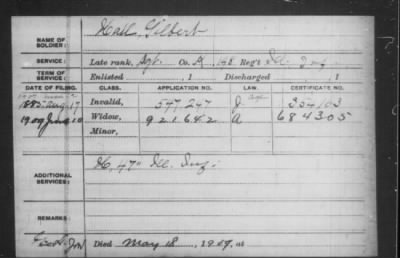 NAME OF SOLDIER: Hall, Gilbert
SERVICE: Late rank, Sgt. Co. A, 148 Reg't Ill. Inf.
TERM OF SERVICE: Enlisted , 1 Discharged , 1
DATE OF FILING. CLASS. APPLICATION NO. LAW. CERTIFICATE NO.
1885 Aug 17 Invalid, 547247 354103
1909 June 10 Widow, 921642 A 684305
Minor,
ADDITIONAL SERVICES: H, 47" Ill. Inf.
REMARKS:
Died May 18, 1909, at